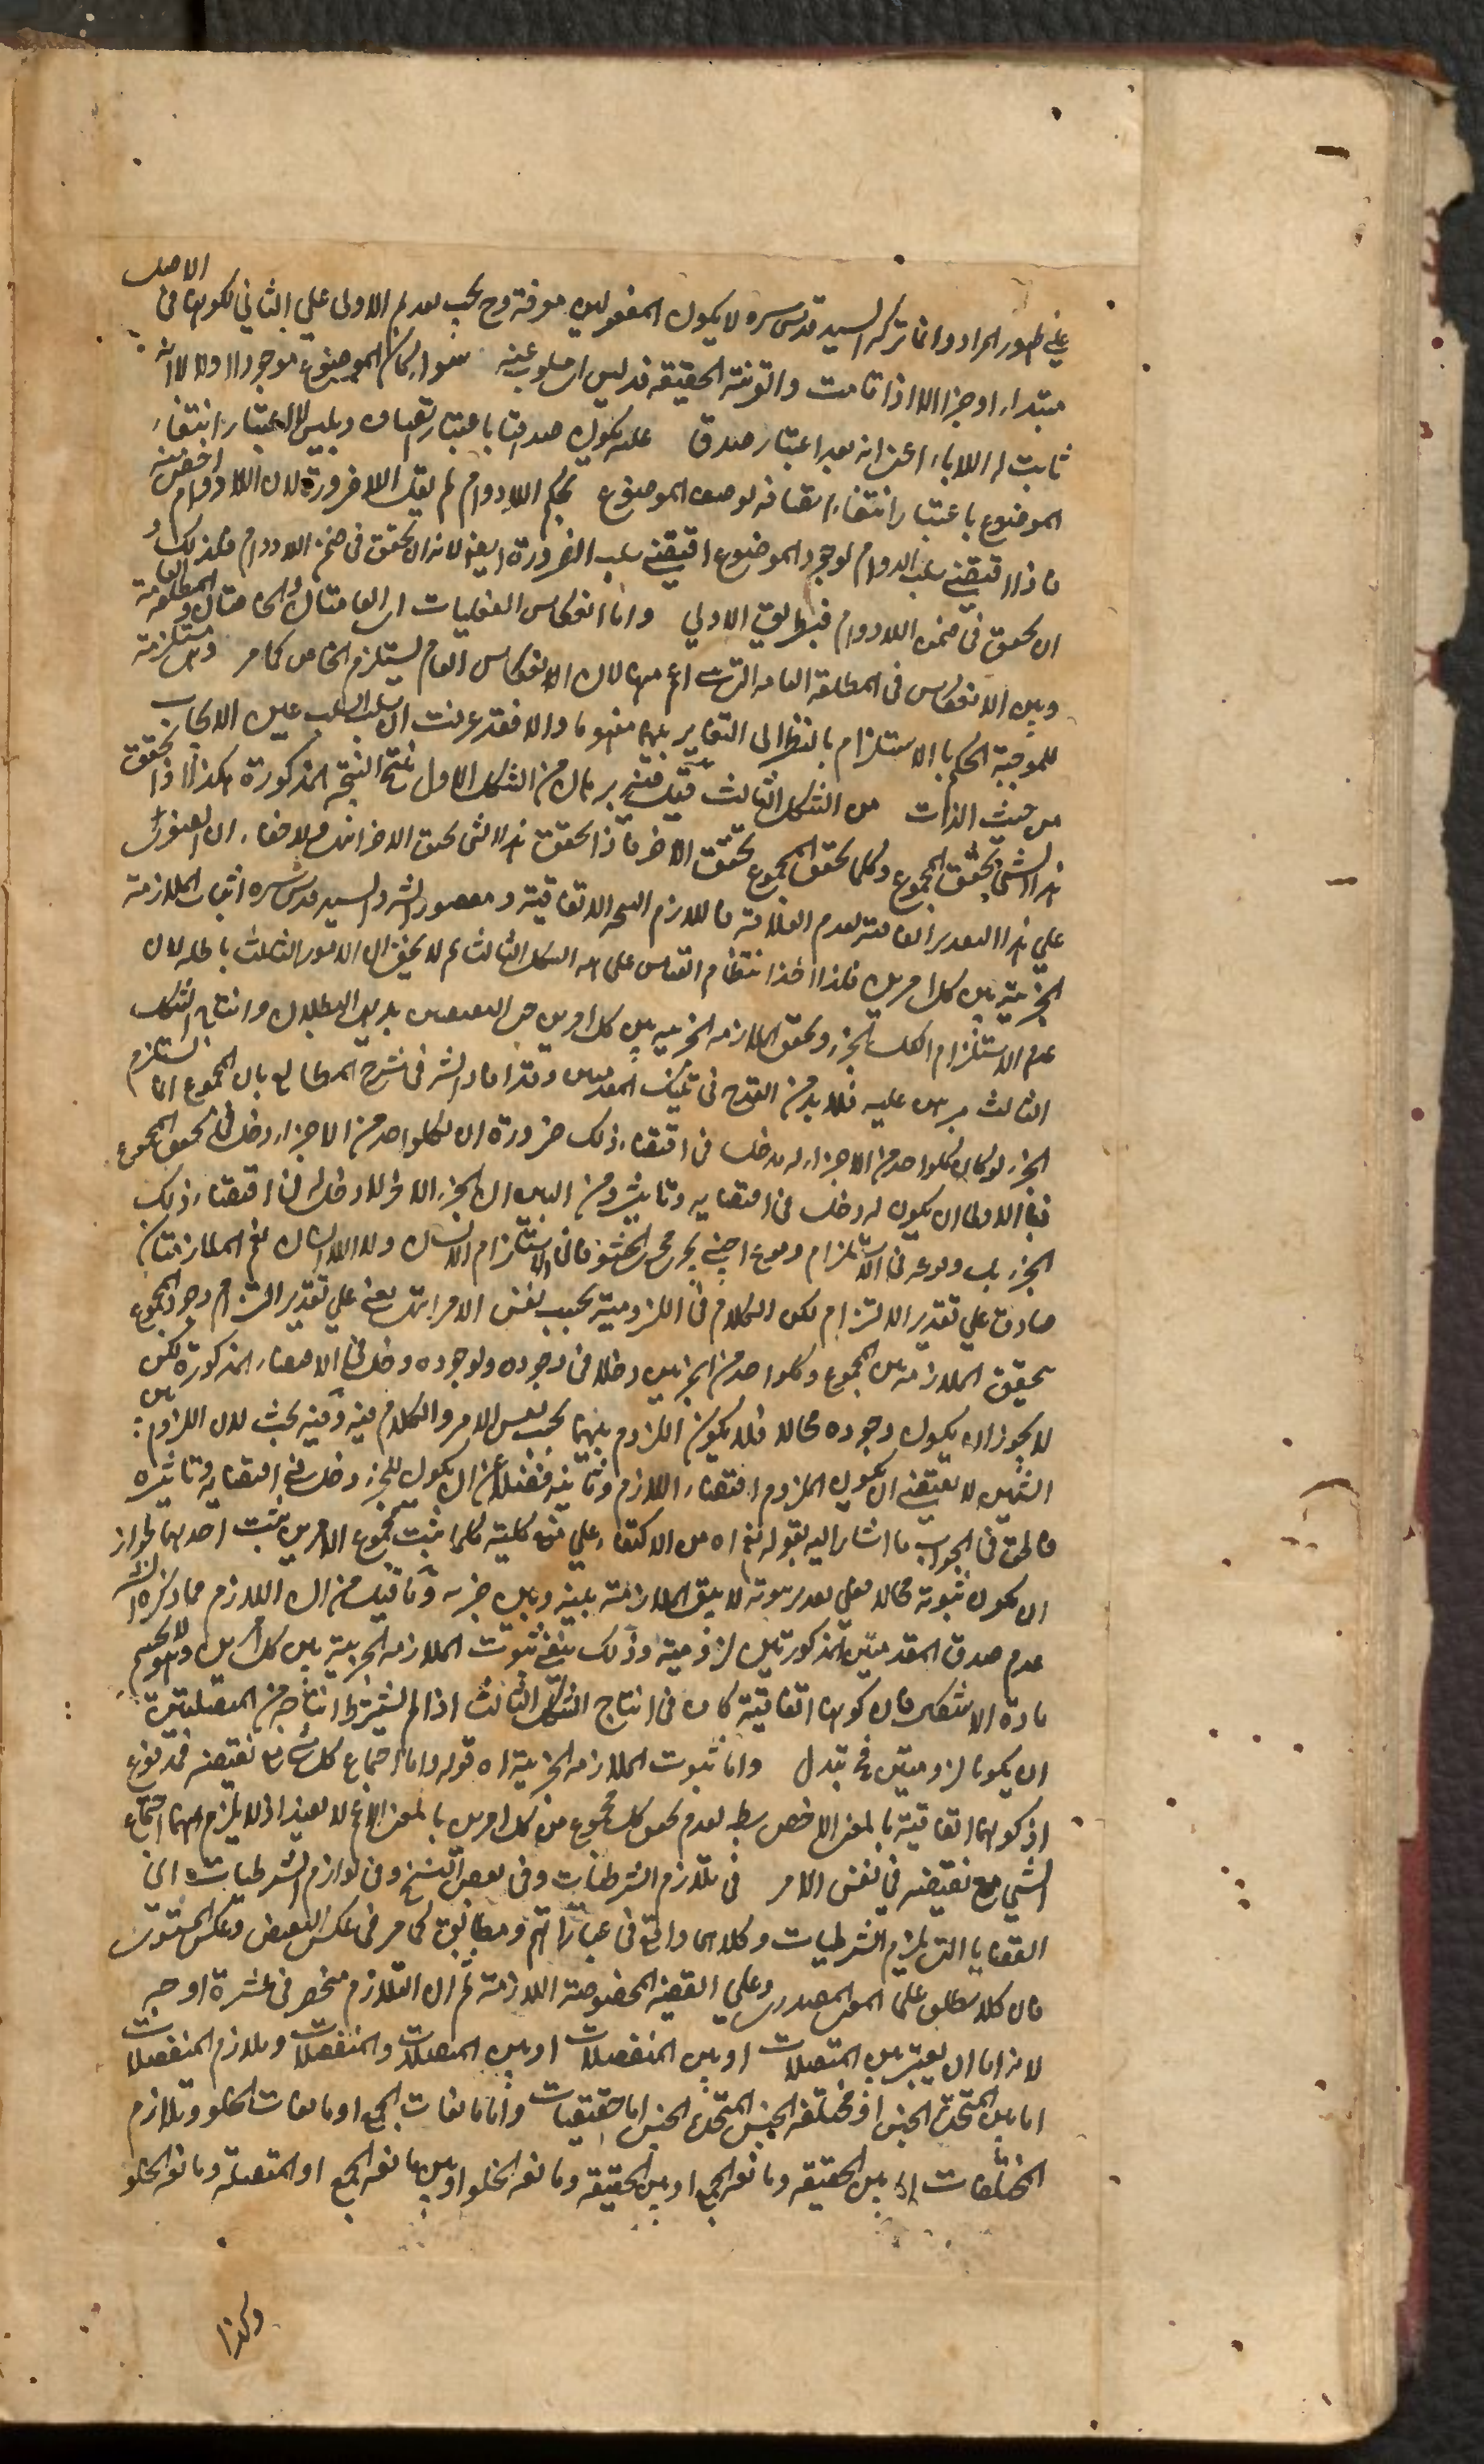 على ظهور المراد وانما تركه السيد قدس سره لا يكون المفعولين معرفة وح يجب تقديم الاول على الثاني لكونهما في الاصل
مبتداء او خبرا الا اذا قامت والقرينة الحقيقة قد ليس ان سلوب عنه سواء كان الموضوع موجودا اولا لانه
ثابت له اللاباء اعني انه بعد اعتبار صدق عله يكون صدقها باعتبار اتصاف وليس الاعتبار انتفاء
الموضوع باعتبار انتفاء اتصافه بوصف الموضوع بحكم اللادوام لم يقل اللاضرورة لان اللادوام اخص منه
فاذا اقتضى سلب الدوام لوجود الموضوع اقتضى سلب الضرورة ايضا لانه ان تحقق في ضمن اللادوام فكذلك
ان تحقق في ضمن اللادوام فبطريق الاولى واما انعكاس الفعليات اي العامتان والخاصتان والمطلقة العامة
وبين الانعكاس في المطلقة العامة التي هي اعم منها لان الانعكاس العام يستلزم الخاص كما مر وهي مستلزمة
للموجبة الحكم بالاستلزام بالنظر الى التغاير بينهما مفهوما والا فقد عرفت ان سلب السلب عين الايجاب
من حيث الذات من الشكل الثالث قيل فينه برهان من الشكل الاول ينتج النتيجة المذكورة هكذا اذا تحقق
هذا الشئ تحقق المجموع وكلما تحقق المجموع تحقق الاخر فاذا تحقق هذا الشئ تحقق الاخر انت ولا خفاء ان الصغرى
على هذا التقدير اتفاقية لعدم العلاقة فاللازم النتيجة الاتفاقية ومقصود الشر والسيد قدس سره اثبات الملازمة
الجزئية بين كل امرين فلذا اخذ انتظام القياس على هيئة الشكل الثالث ثم لا يخفى ان الامور الثلث باطلة لان
عدم الاستلزام الكل الجزء وتحقق الملازمة الجزئية بين كل امرين حتى النقيضين بديهي البطلان وانتاج الشكل
الثالث مبرهن عليه فلا بد من القدح في تلك المقدمتين وقد افاد الشر في شرح المطالع بان المجموع انما يستلزم
الجزء لو كان لكل واحد من الاجزاء له مدخل في اقتضاء ذلك ضرورة ان لكل واحد من الاجزاء دخل في تحقق المجموع
فبالاولى ان يكون له دخل في اقتضايه وتاثيره ومن البين ان الجزء الاخر لا دخل له في اقتضاء ذلك
الجزء بل وقوعه في الاستلزام وقوع اجنبي يجري مجرى الحشو فان الاستلزام الانسان واللاانسان نعم الملازمتان
صادقتان على تقدير الالتزام لكن الكلام في اللزومية بحسب نفس الامر انتهى يعني على تقدير التزام وجود المجموع
تحقيق الملازمة بين المجموع وكل واحد من الجزئين دخلا في وجوده ولوجوده دخل في الاقتضاء المذكورة لكن
لا يجوز ان يكون وجوده محالا فلا يكون اللزوم بينهما بحسب نفس الامر والكلام فيه وفيه بحث لان اللزوم بين
الشيئين لا يقتضى ان يكون الملزوم اقتضاء اللازم وتاثيره فضلا عن ان يكون للجزء دخل في اقتضايه وتاثيره
فالحق في الجواب ما اشار اليه بقوله نعم اه من الاكتفاء على منع كلية كلما ثبت مجموع الامرين ثبت احدهما لجواز
ان يكون ثبوته محالا فعلى تقدير ثبوته لا يبق الملازمة بينه وبين جزءه وما قيل من ان اللازم مما ذكره الشر
عدم صدق المقدمتين المذكورتين لزومية وذلك ينفى ثبوت الملازمة الجزئية بين كل امرين ولا يحسم
مادة الاشكال فان كونها اتفاقية كاف في انتاج الشكل الثالث اذا لم يشترط انتاجه من المتصلتين
ان يكونا لزوميتين فتبدل واما ثبوت الملازمة الجزئية اه قوله واما اجتماع كل شئ مع نقيضه فمدفوع
اذ كونهما اتفاقية بالمعنى الاخص بط لعدم تحقق كل مجموع من كل امرين بالمعنى الاعم لا يفيد اذ لا يلزم منهما اجتماع
الشئ مع نقيضه في نفس الامر في تلازم الشرطيات وفى بعض النسخ وفى لوازم الشرطيات اى
القضايا التي يلزم الشرطيات وكلاهما واقع في عباراتهم ومطابق لما مر في عكس النقيض وعكس المستوى
فان كلا يطلق على المعنى المصدرى وعلى القضية المخصوصة اللازمة ثم ان التلازم منحصر في عشرة اوجه
لانه اما ان يعتبر بين المتصلات او بين المنفصلات او بين المتصلات والمنفصلات وتلازم المنفصلات
اما بين المتحدة الجنس او مختلفة الجنس المتحدة الجنس اما حقيقيات واما مانعات الجمع او مانعات الخلو وتلازم
المختلفات اما بين الحقيقة ومانعة الجمع او بين الحقيقة ومانعة الخلو او بين مانعة الجمع او المتصلة ومانعة الخلو
وكذا